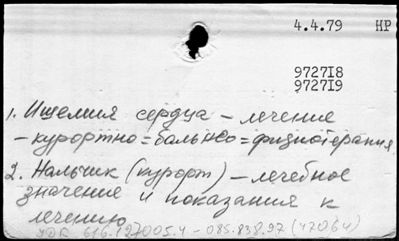 4.4.79 НР
9727I8
9727I9
1. Ишемия сердца – лечение
– курортно = бальнео = физиотерапия
2. Нальчик (курорт) – лечебное
значение и показания к
лечению
УДК 616.127005.4 – 085.838.97 (47064)